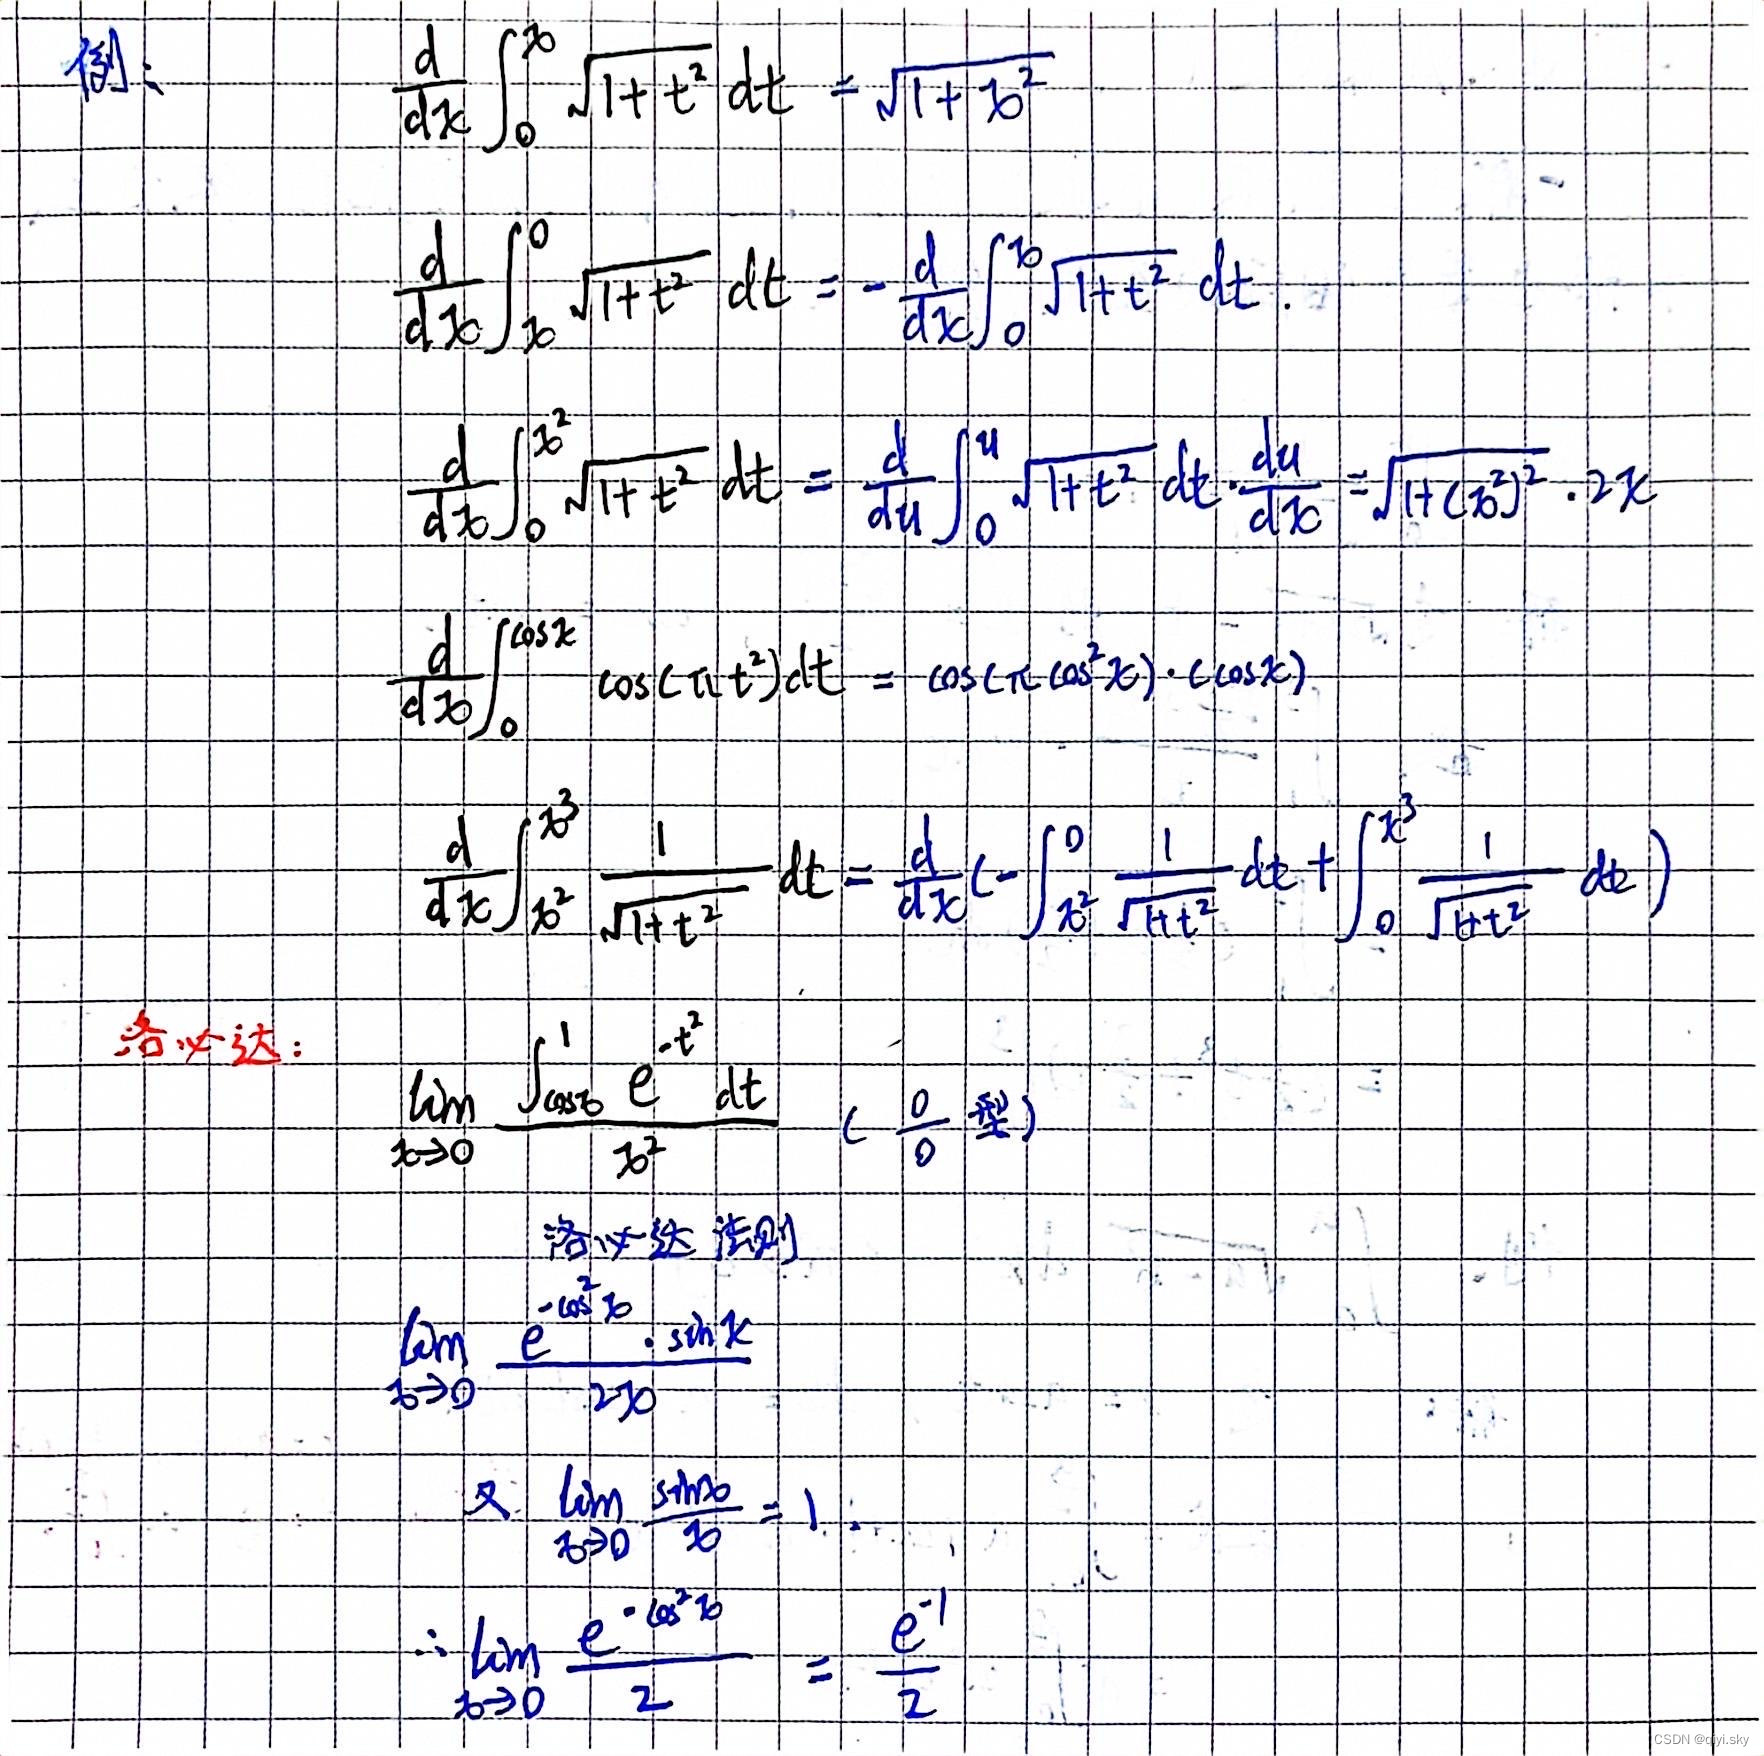 例:
d/dx ∫_0^x √(1+t²) dt = √(1+x²)
d/dx ∫_x^0 √(1+t²) dt = - d/dx ∫_0^x √(1+t²) dt .
d/dx ∫_0^{x²} √(1+t²) dt = d/du ∫_0^u √(1+t²) dt · du/dx = √(1+(x²)²) · 2x
d/dx ∫_0^{cosx} cos(πt²)dt = cos(πcos²x)·(cosx)
d/dx ∫_{x²}^{x³} 1/√(1+t²) dt = d/dx (- ∫_{x²}^0 1/√(1+t²) dt + ∫_0^{x³} 1/√(1+t²) dt )
洛必达:
lim_{x→0} (∫_{cosx}^1 e^{-t²} dt)/x² ( 0/0 型)
洛必达法则
lim_{x→0} (e^{-cos²x} · sinx)/2x
又 lim_{x→0} sinx/x = 1 .
∴ lim_{x→0} e^{-cos²x}/2 = e^{-1}/2
CSDN @qiyi.sky